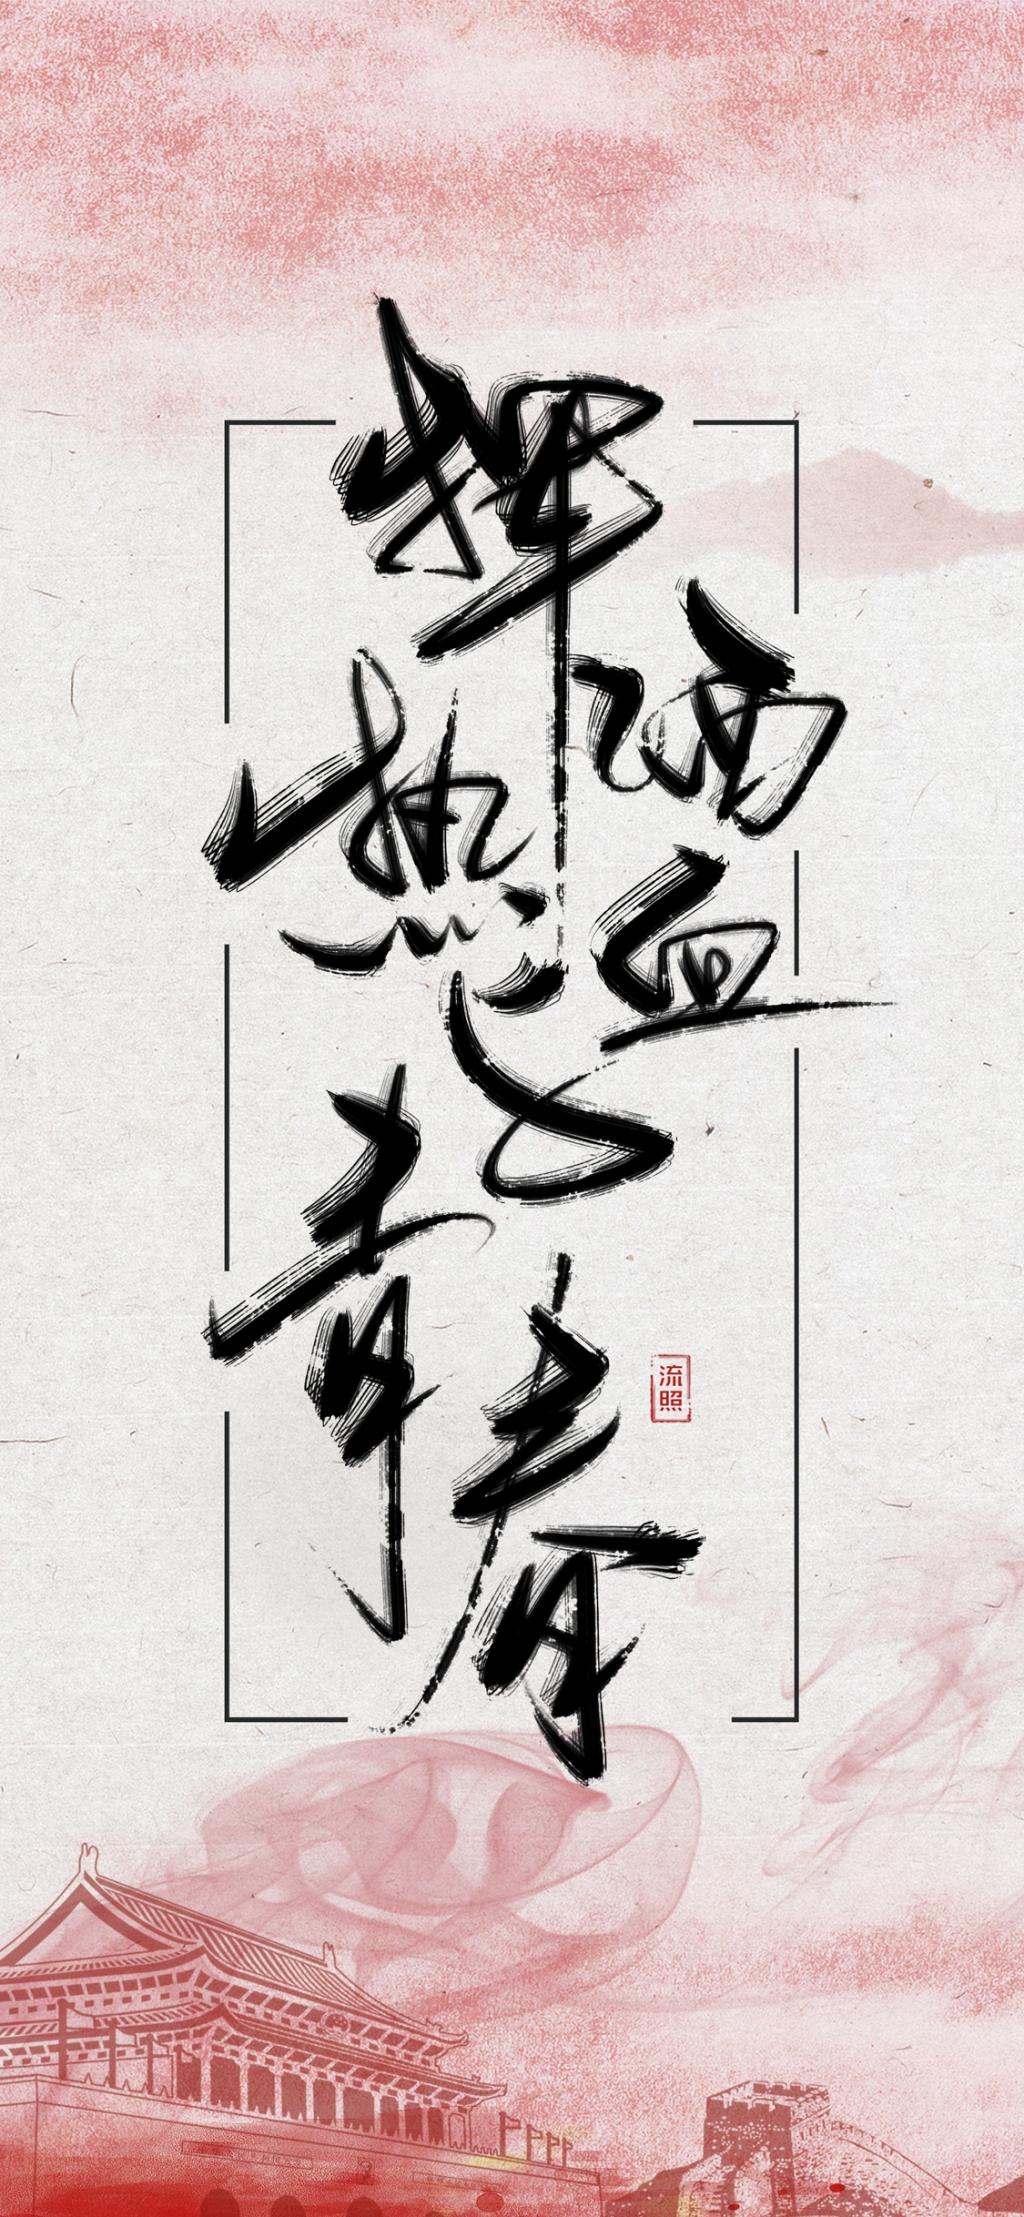 挥洒热血之青春
流照